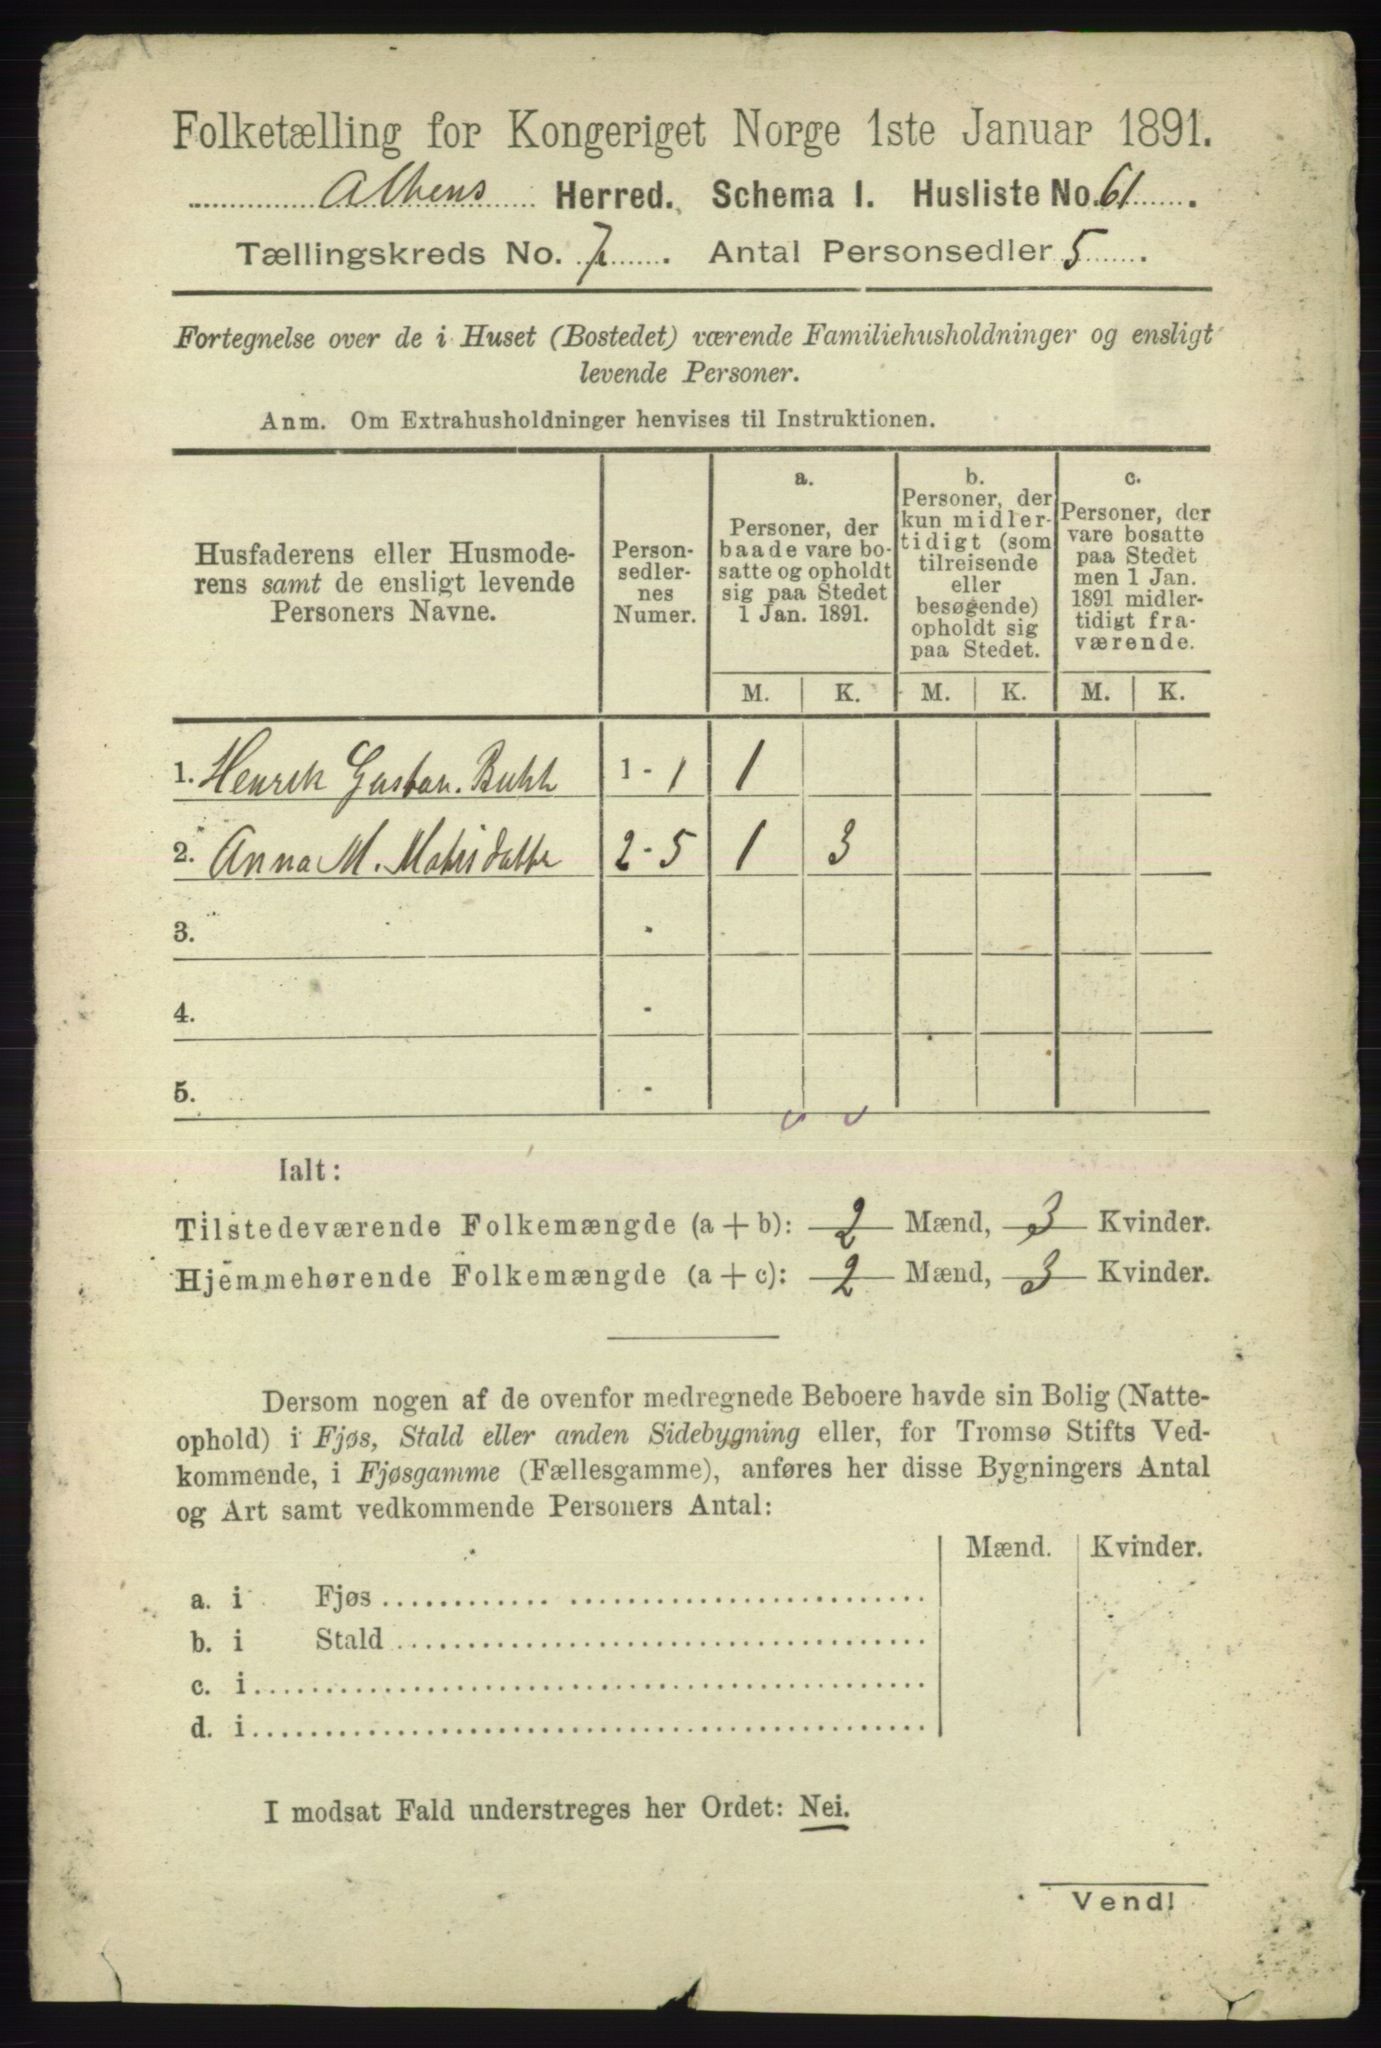 Folketælling for Kongeriget Norge 1ste Januar 1891.
Altens Herred. Schema I. Husliste No. 61.
Tællingskreds No. 7. Antal Personsedler 5.
Fortegnelse over de i Huset (Bostedet) værende Familiehusholdninger og ensligt
levende Personer.
Anm. Om Extrahusholdninger henvises til Instruktionen.
Husfaderens eller Husmode-
rens samt de ensligt levende
Personers Navne.
Person-
sedler-
nes
Numer.
a.
Personer, der
baade vare bo-
satte og opholdt
sig paa Stedet
1 Jan. 1891.
b.
Personer, der
kun midler-
tidigt (som
tilreisende
eller
besøgende)
opholdt sig
paa Stedet.
c.
Personer, der
vare bosatte
paa Stedet
men 1 Jan.
1891 midler-
tidigt fra-
værende.
M. K. M. K. M. K.
1. Henrik Gustav. 1 - 1 1
2. Anna M. Matisdatter 2 - 5 1 3
3. -
4. -
5. -
Ialt:
Tilstedeværende Folkemængde (a + b): 2 Mænd, 3 Kvinder.
Hjemmehørende Folkemængde (a + c): 2 Mænd, 3 Kvinder.
Dersom nogen af de ovenfor medregnede Beboere havde sin Bolig (Natte-
ophold) i Fjøs, Stald eller anden Sidebygning eller, for Tromsø Stifts Ved-
kommende, i Fjøsgamme (Fællesgamme), anføres her disse Bygningers Antal
og Art samt vedkommende Personers Antal:
Mænd. Kvinder.
a. i Fjøs
b. i Stald
c. i
d. i
I modsat Fald understreges her Ordet: Nei.
Vend!